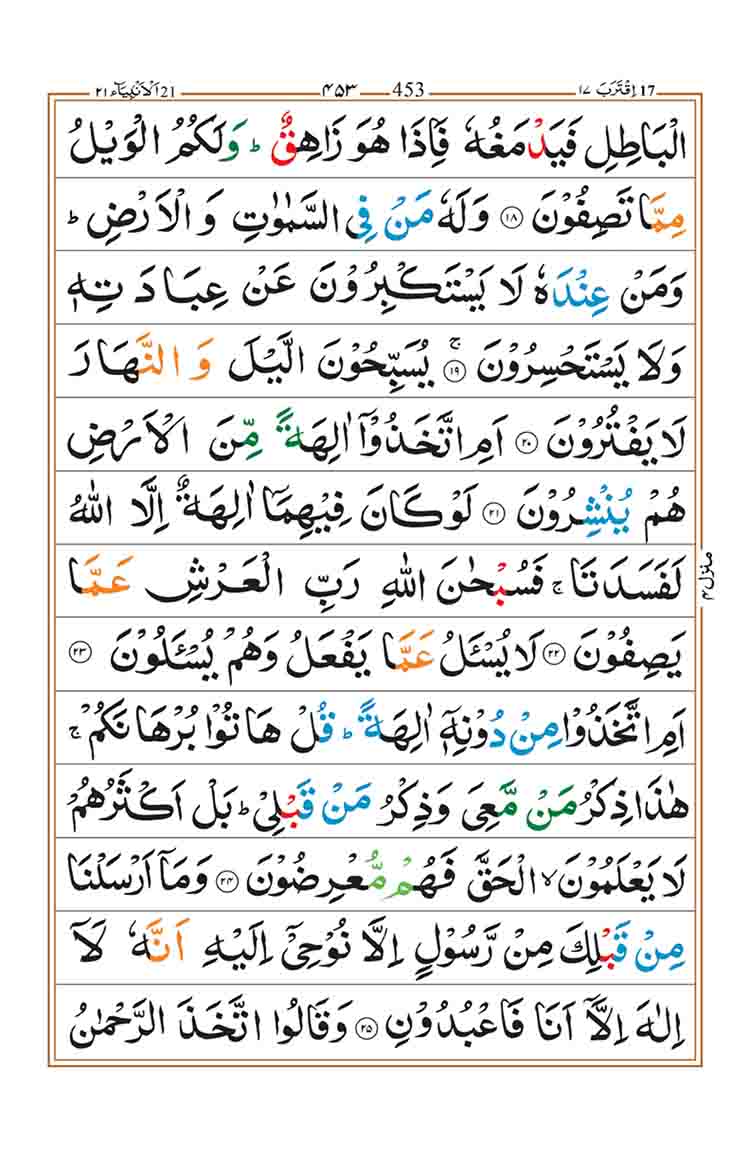 اَلْاَنْۢبِيَآء ٢١ 21 ۴۵۳ 453 اِقْتَرَبَ ١٧ 17
الْبَاطِلِ فَيَدْمَغُهٗ فَاِذَا هُوَ زَاهِقٌ ؕ وَ لَكُمُ الْوَيْلُ
مِمَّا تَصِفُوْنَ ۝۱۸ وَلَهٗ مَنْ فِي السَّمٰوٰتِ وَ الْاَرْضِ ؕ
وَمَنْ عِنْدَهٗ لَا يَسْتَكْبِرُوْنَ عَنْ عِبَادَتِهٖ
وَلَا يَسْتَحْسِرُوْنَ ۚ۝۱۹ يُسَبِّحُوْنَ الَّيْلَ وَ النَّهَارَ
لَا يَفْتُرُوْنَ ۝۲۰ اَمِ اتَّخَذُوْۤا اٰلِهَةً مِّنَ الْاَرْضِ
هُمْ يُنْشِرُوْنَ ۝۲۱ لَوْ كَانَ فِيْهِمَاۤ اٰلِهَةٌ اِلَّا اللّٰهُ
لَفَسَدَتَا ۚ فَسُبْحٰنَ اللّٰهِ رَبِّ الْعَرْشِ عَمَّا
يَصِفُوْنَ ۝۲۲ لَا يُسْئَلُ عَمَّا يَفْعَلُ وَهُمْ يُسْئَلُوْنَ ۝۲۳
اَمِ اتَّخَذُوْا مِنْ دُوْنِهٖۤ اٰلِهَةً ؕ قُلْ هَاتُوْا بُرْهَانَكُمْ ۚ
هٰذَا ذِكْرُ مَنْ مَّعِيَ وَذِكْرُ مَنْ قَبْلِيْ ؕ بَلْ اَكْثَرُهُمْ
لَا يَعْلَمُوْنَ ۙ الْحَقَّ فَهُمْ مُّعْرِضُوْنَ ۝۲۴ وَمَاۤ اَرْسَلْنَا
مِنْ قَبْلِكَ مِنْ رَّسُوْلٍ اِلَّا نُوْحِيْۤ اِلَيْهِ اَنَّهٗ لَاۤ
اِلٰهَ اِلَّاۤ اَنَا فَاعْبُدُوْنِ ۝۲۵ وَقَالُوا اتَّخَذَ الرَّحْمٰنُ
منزل ۴